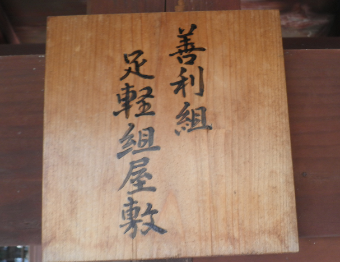 善利組
足軽組屋敷